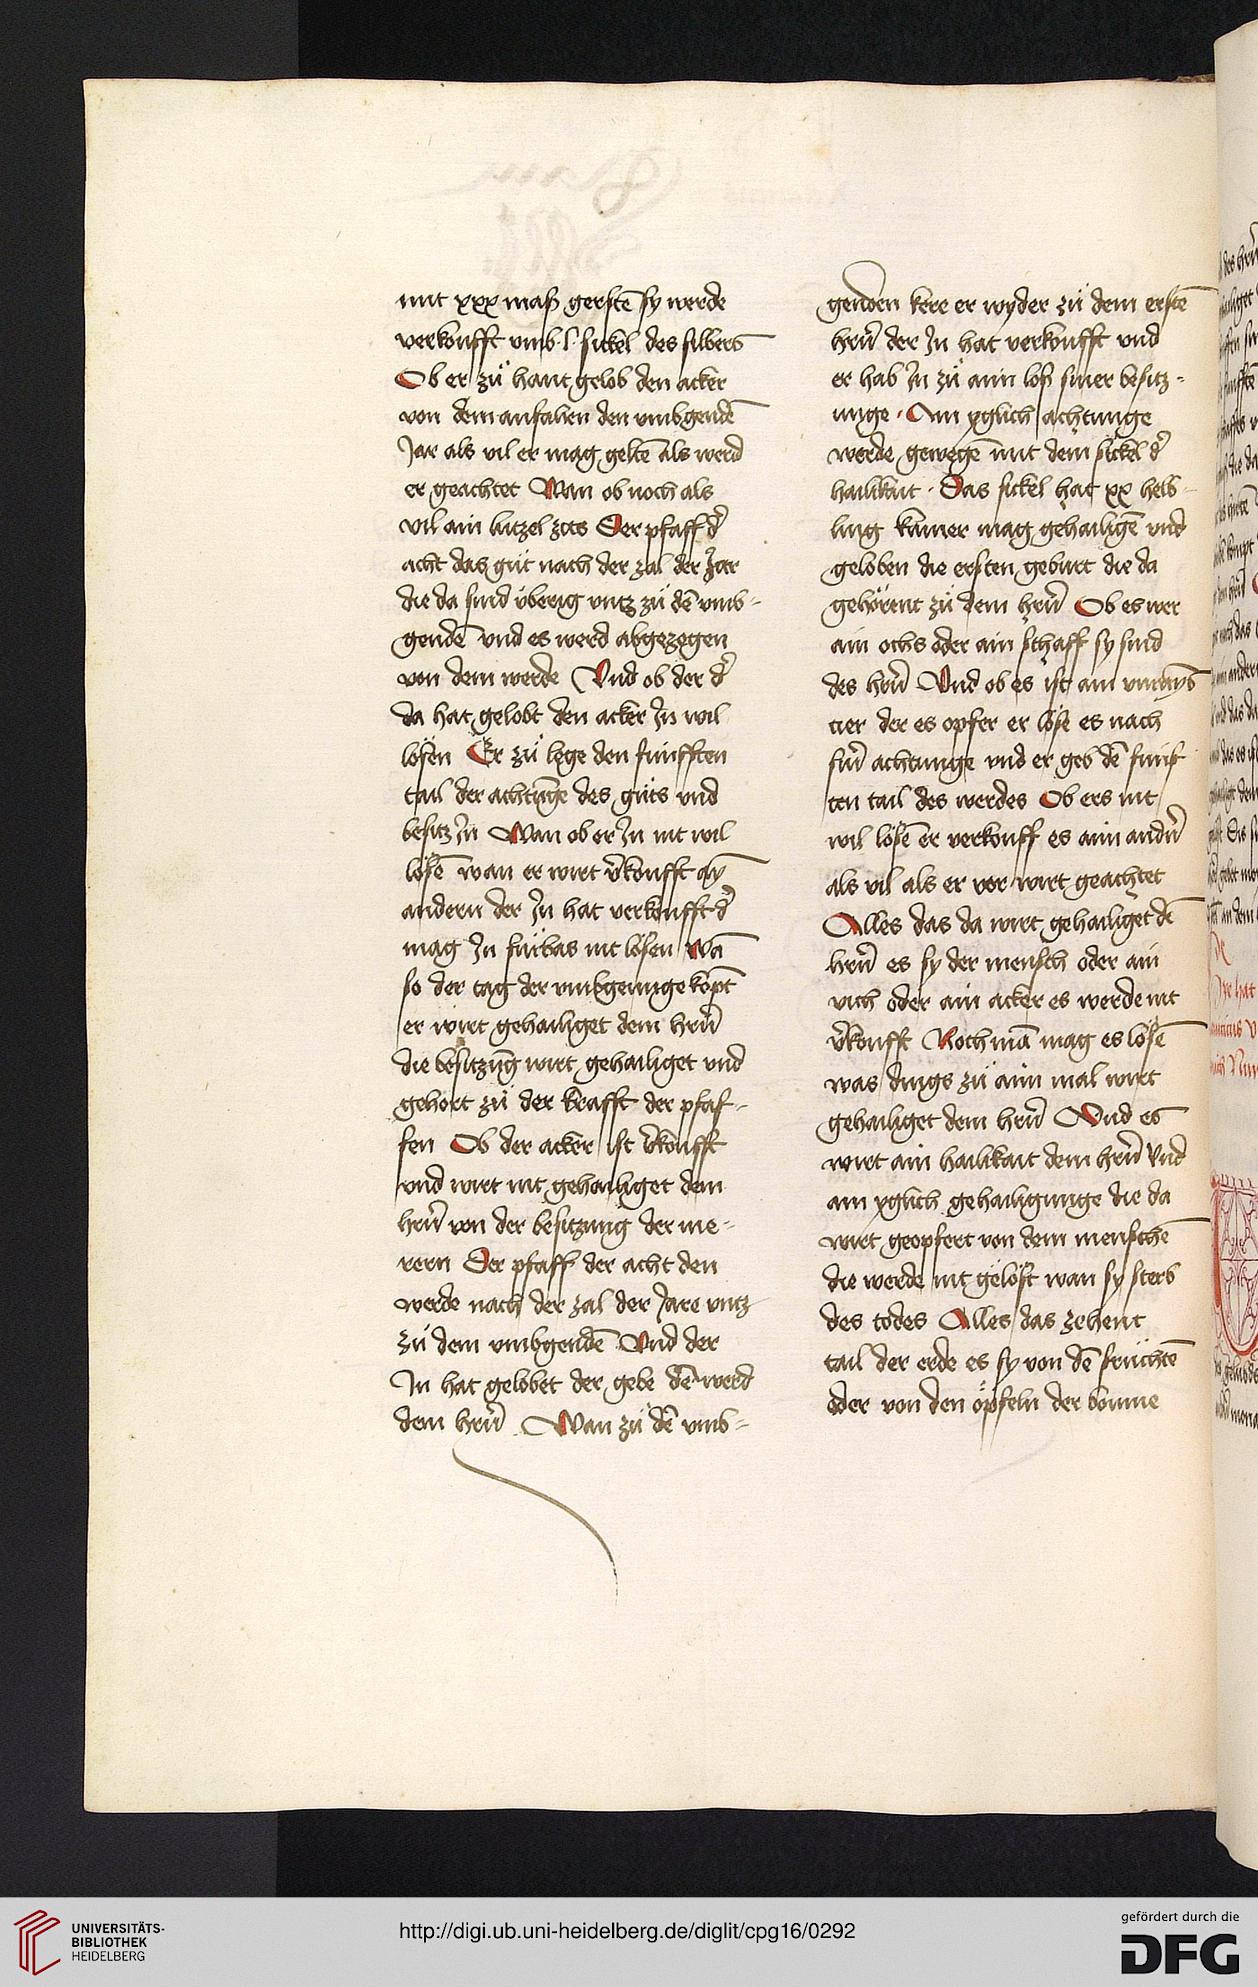 mit xxx maß gerstē sy werde
verkoufft vmb ·l· sickel des silbers
Ob er zů hant gelob den acker
von dem anfahen den vmbgendē
Jar als vil er mag geltē als werd
er geachtet Wan ob noch als
vil ain lutzel zits Der pfaff d̄
acht das gůt nach der zal der Jar
die da sind v̈berig vntz zů dē vmb-
gendē vnd es werd abgezogen
von dem werde Vnd ob der d̄
da hat gelobt den acker Jn wil
lösen Er zů lege den fünfften
tail der achtūge des gůts vnd
besitz Jn Wan ob er Jn nit wil
lösē wan er wirt v̄koufft aȳ
andern der Jn hat verkoufft d̄
mag Jn fürbas nit lösen Wā
so der tag der vmbgeunge kōpt
er wirt gehailiget dem hrn̄
die besitzūg wirt gehailiget vnd
gehört zů der krafft der pfaf-
fen Ob der acker ist v̄koufft
vnd wirt nit gehailiget dem
hrn̄ von der besitzung der me-
rern Der pfaff der acht den
werde nach der zal der Jare vntz
zů dem vmbgendē Vnd der
Jn hat gelobet der gebe dē werd
dem hrn̄ Wan zů dē vmb-
genden kere er wyder zů dem erstē
hrn̄ der Jn hat verkoufft vnd
er hab Jn zů aim loß siner besitz-
unge · Ain yglich achtunge
werde gewegē mit dem sickel d̄
hailikait · Das sickel hat xx helb-
ling kainer mag gehailigē vnd
geloben die ersten geburt die da
gehörent zů dem hrn̄ Ob es wer
ain ochs oder ain schaff sy sind
des hrn̄ Vnd ob es ist ain vnrayns
tier der es opfer er löse es nach
sin̄ achtunge vnd er geb dē fünf-
ten tail des werdes Ob ers nit
wil lösē er verkouff es aim andn̄
als vil als er vor wirt geachtet
Alles das da wirt gehailiget dē
hrn̄ es sy der mensch oder ain
vich oder ain acker es werde nit
v̄koufft Noch mā mag es lösē
was dings zů aim mal wirt
gehailiget dem hrn̄ Vnd es
wirt ain hailikait dem hrn̄ Vnd
ain yglich gehailigunge die da
wirt geopfert von dem menschē
die werde nit gelöst wan sy sterb
des todes Alles das zehent
tail der erde es sy von dē früchtē
oder von den öpfeln der boume
UNIVERSITÄTS-
BIBLIOTHEK
HEIDELBERG
http://digi.ub.uni-heidelberg.de/diglit/cpg16/0292
gefördert durch die
DFG